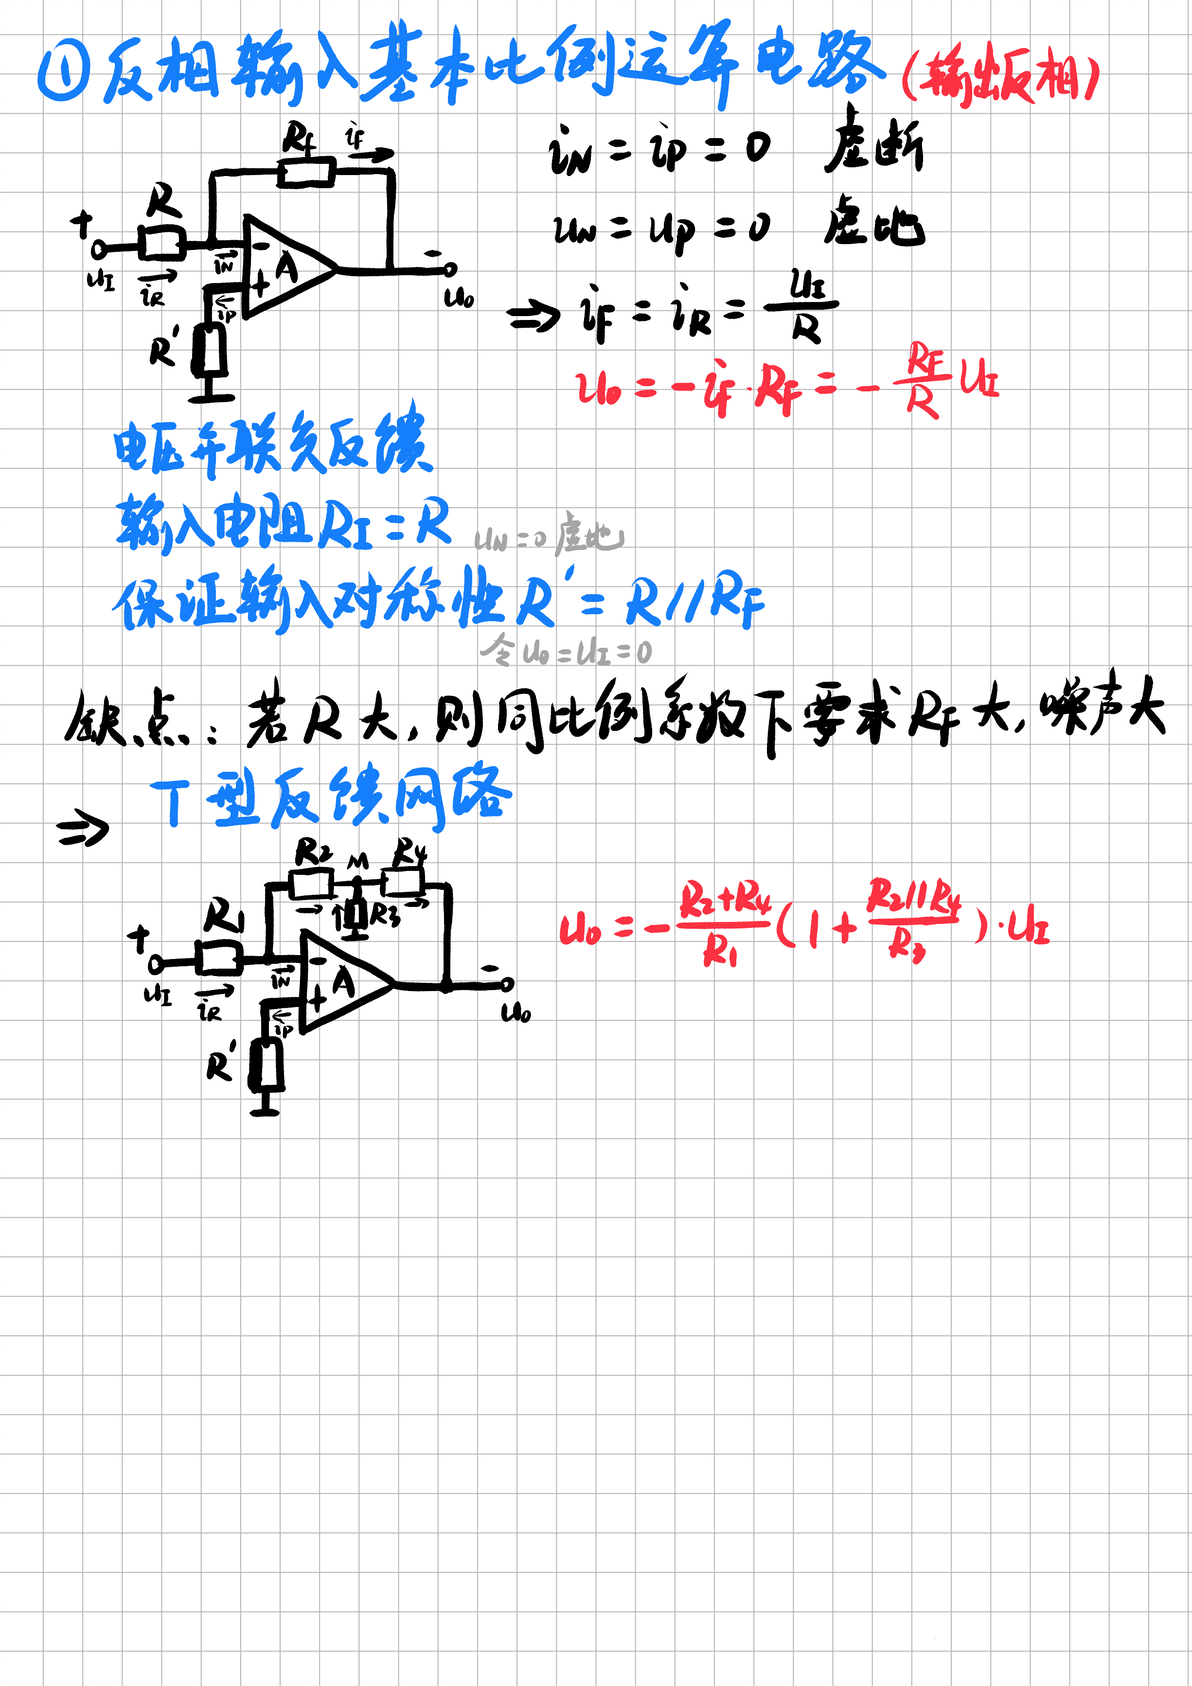 ①反相输入基本比例运算电路(输出反相)
Rf iF
R
+ - A + -
uI iR iN iP uo
R'
iN = iP = 0 虚断
uN = uP = 0 虚地
⇒ iF = iR = uI/R
uo = -iF·RF = -RF/R uI
电压并联负反馈
输入电阻RI=R uN=0 虚地
保证输入对称性R'=R//RF
令uo=uI=0
缺点:若R大,则同比例系数下要求RF大,噪声大
⇒ T型反馈网络
R2 M R4
R1 R3
+ - A + -
uI iR iN iP uo
R'
uo = -R2+R4/R1 (1+R2//R4/R3)·uI